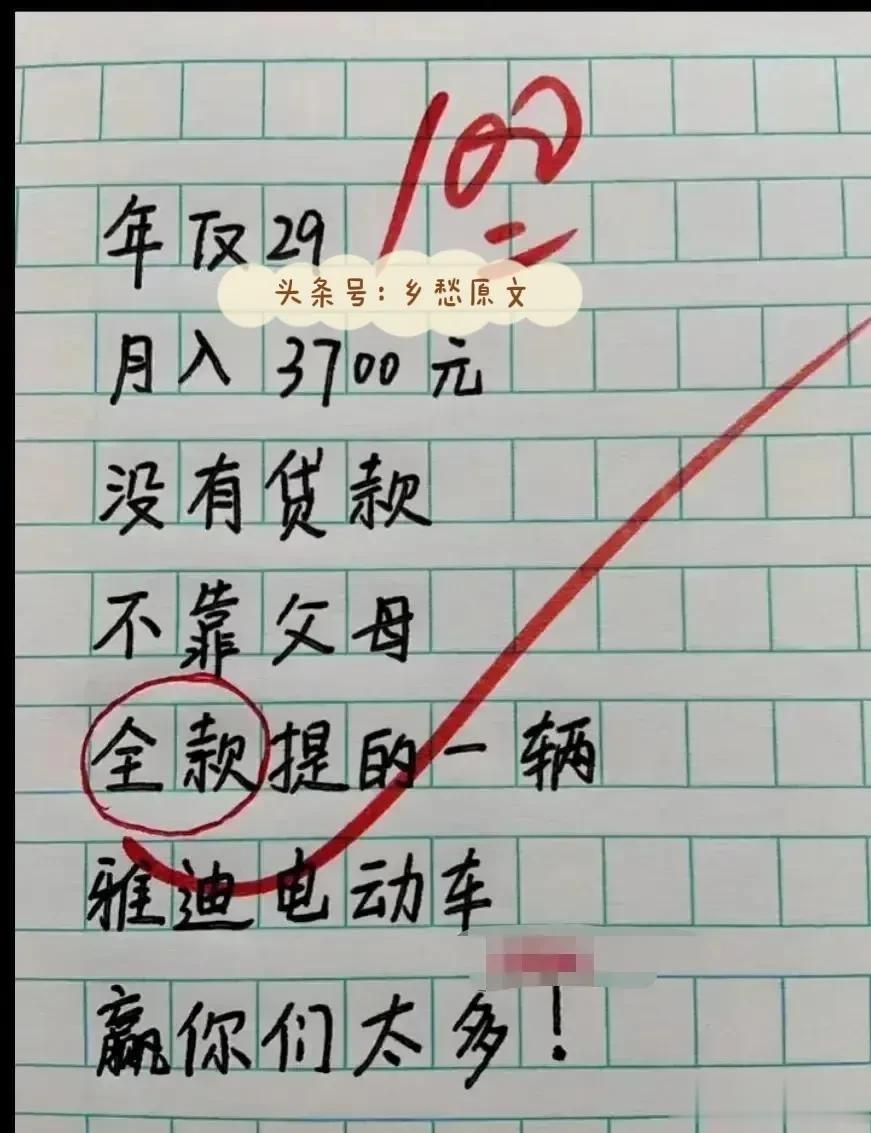 100
年仅29
头条号:乡愁原文
月入 3700元
没有贷款
不靠父母
全款提的一辆
雅迪电动车
赢你们太多!